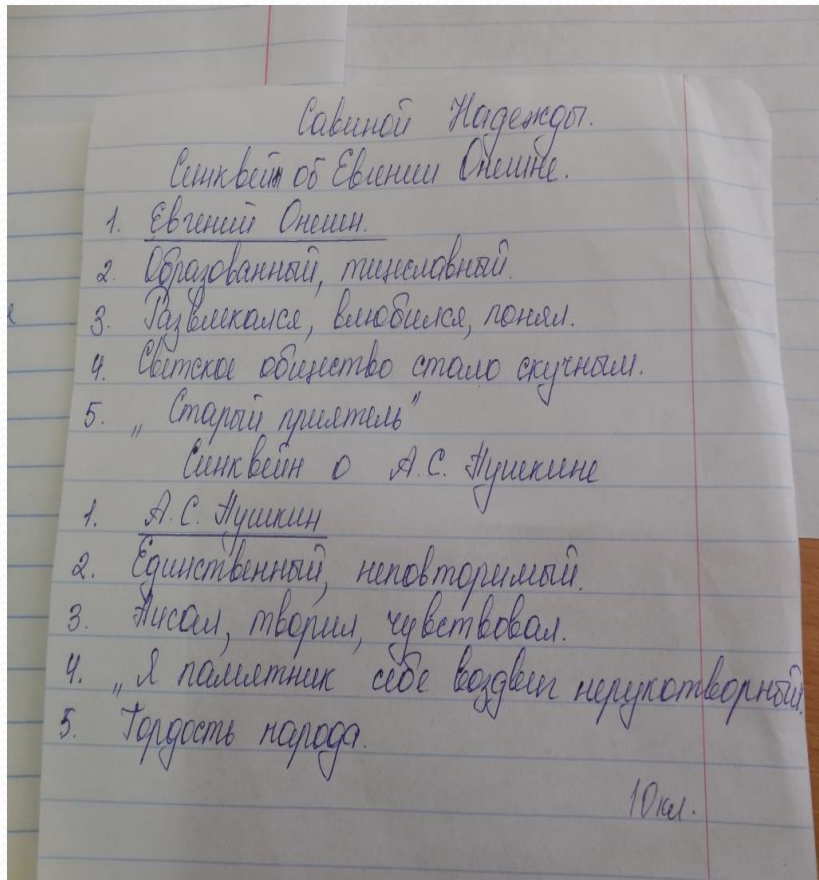 Савиной Надежды.
Синквейн об Евгении Онегине.
1. Евгений Онегин.
2. Образованный, тщеславный.
3. Развлекался, влюбился, понял.
4. Светское общество стало скучным.
5. „Старый приятель"
Синквейн о А.С. Пушкине
1. А.С. Пушкин
2. Единственный, неповторимый.
3. Писал, творил, чувствовал.
4. „Я памятник себе воздвиг нерукотворный.
5. Гордость народа.
10 кл.